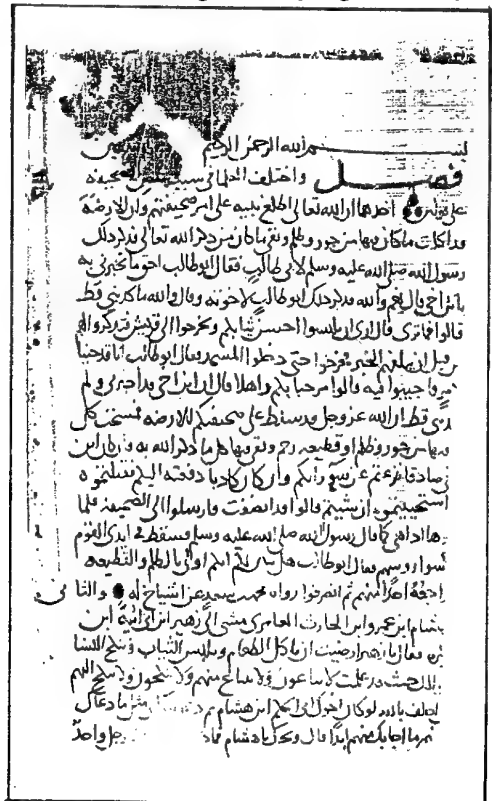 بسم الله الرحمن الرحيم
فصل واختلف العلماء في سبب نقض الصحيفة
على قولين احدهما ان الله تعالى اطلع نبيه على امر صحيفتهم وان الارضة
قد اكلت ما كان فيها من جور وظلم وبقي ما كان من ذكر الله تعالى فذكر ذلك
رسول الله صلى الله عليه وسلم لابي طالب فقال ابو طالب احق ما تخبرني به
يا بن اخي قال نعم والله فذكر ذلك ابو طالب لاخوته وقال والله ما كذبني قط
قالوا فما ترى قال ارى ان تلبسوا احسن ثيابكم وتخرجوا الى قريش فتذكروا لهم
من قبل ان يبلغهم الخبر فخرجوا حتى دخلوا المسجد فقال ابو طالب انا قد جينا
فاجيبوا فيه قالوا مرحبا بكم واهلا قال ان ابن اخي قد اخبرني ولم
قط ان الله عز وجل قد سلط على صحيفتكم الارضة فمسحت كل
فيها من جور وظلم او قطيعة رحم وبقي فيها كل ما ذكر الله به فان كان ابن
صادقا نزعتم عن سو رأيكم وان كان كاذبا دفعته اليكم فقتلتموه
استحييتموه ان شيتم قالوا قد انصفت فارسلوا الى الصحيفة فلما
اذا هي كما قال رسول الله صلى الله عليه وسلم فسقط في ايدي القوم
رووسهم فقال ابو طالب هل تبين لكم انكم اولى بالظلم والقطيعة
احد منهم ثم انصرفوا رواه محمد بن سعد عن اشياخ له والثاني
هشام ابن عمرو ابن الحارث العامري مشى الى زهير ابن ابي امية ابن
فقال يا زهير ارضيت ان تاكل الطعام وتلبس الثياب وتنكح النسا
حيث قد علمت لا يباعون ولا يبتاع منهم ولا ينكحون ولا ينكح اليهم
احلف بالله لو كان اخوال ابي الحكم ابن هشام ما دعاك
ما اجابك منهم ابدا قال ويحك يا هشام رجل واحد